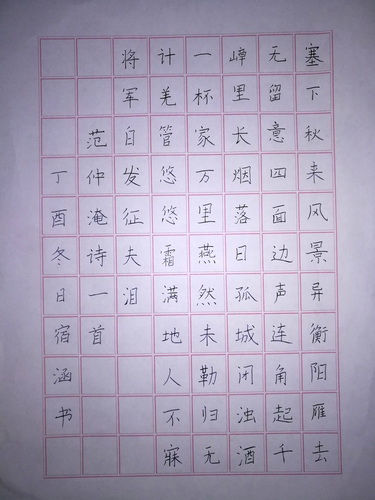 塞下秋来风景异衡阳雁去
无留意四面边声连角起千
嶂里长烟落日孤城闭浊酒
一杯家万里燕然未勒归无
计羌管悠悠霜满地人不寐
将军白发征夫泪
范仲淹诗一首
丁酉冬日宿涵书